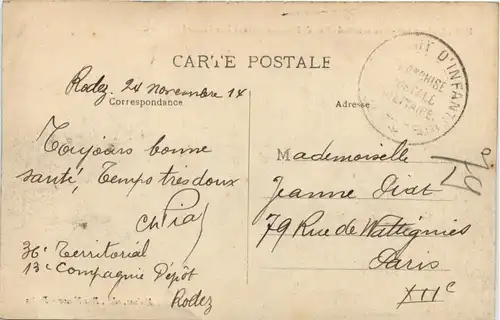 CARTE POSTALE
Rodez. 24 novembre 14
Correspondance
Toujours bonne
santé, Temps très doux
Ch Piat
36e Territorial
13e Compagnie Dépôt
Rodez
Adresse
D'INFANT
FRANCHISE
POSTALE
MILITAIRE
Mademoiselle
Jeanne Piat
79 Rue de Wattignies
Paris
XIIe
79